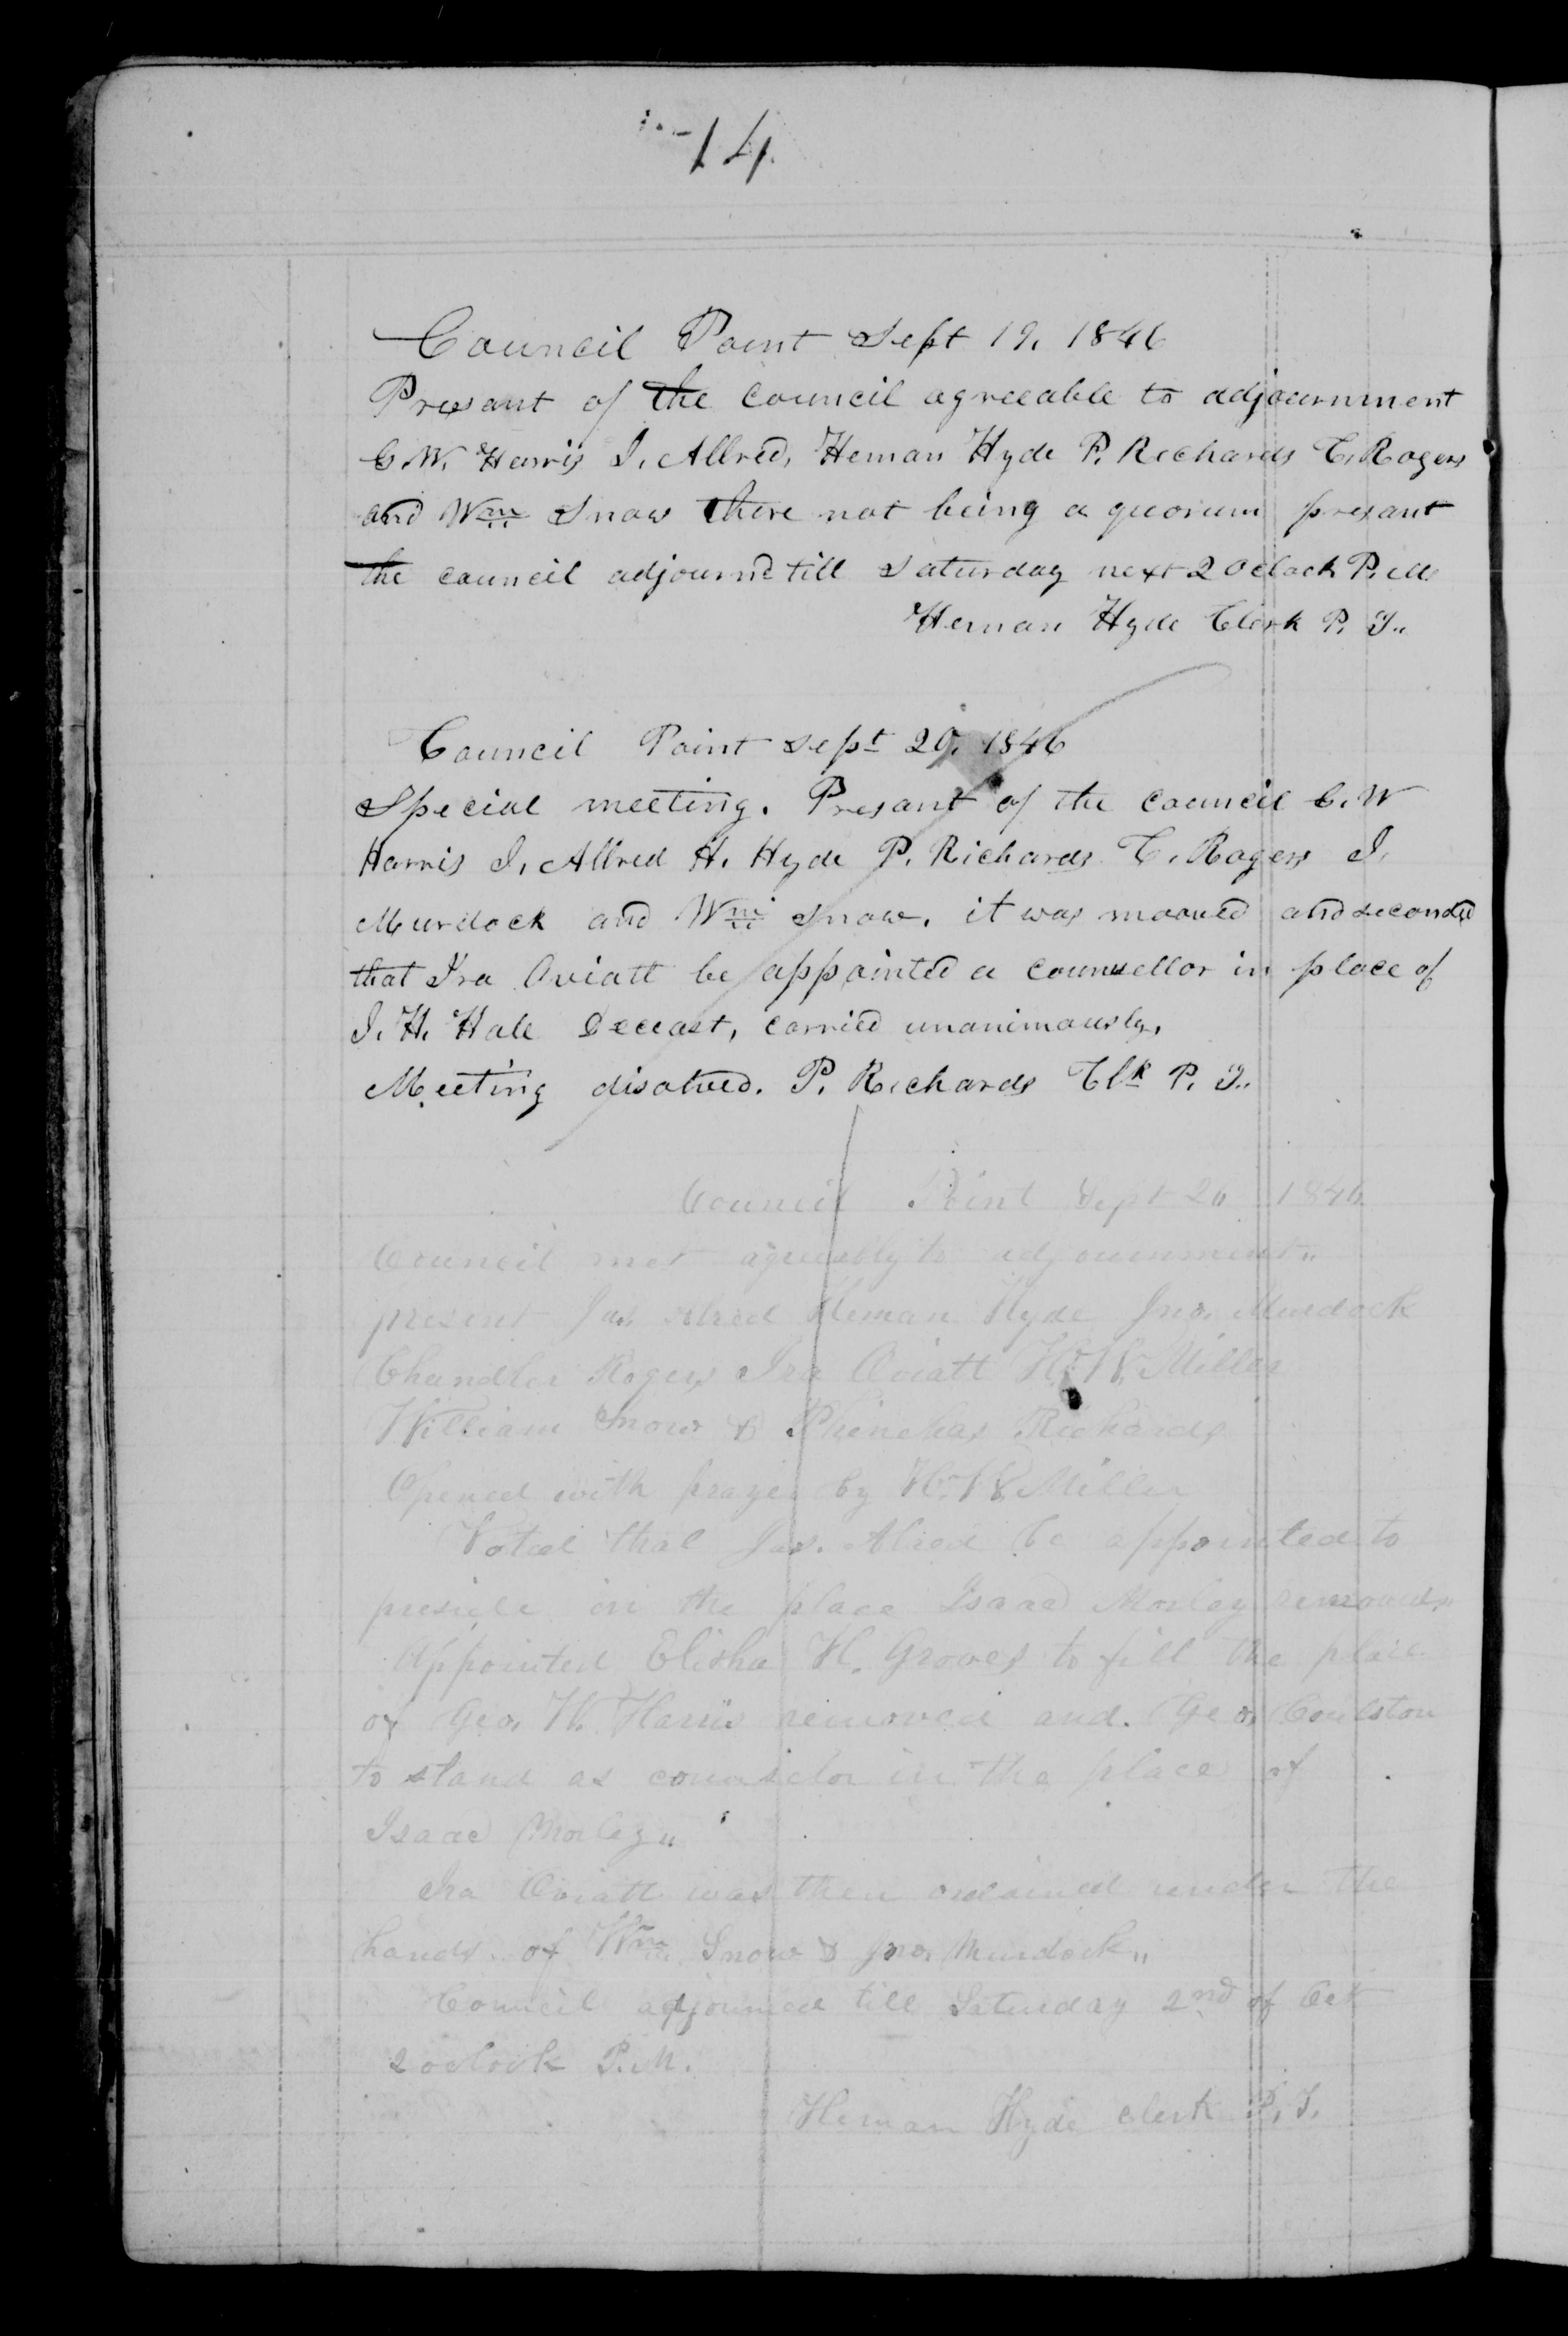 14.
Council Point Sept 19, 1846
Presant of the council agreeable to adjournment
G. W. Harris J. Allred, Heman Hyde P. Richards C. Rogers
and Wm Snow there not being a quorum presant
the council adjournd till Saturday next 2 Oclock P. M.
Heman Hyde Clerk P. T.
Council Point Sept 20, 1846
Special meeting. Presant of the council G. W
Harris J. Allred H. Hyde P. Richards C. Rogers J.
Murdock and Wm Snow. it was mooved and seconded
that Ira Oviatt be appointed a counsellor in place of
J. H. Hale Deceast, carried unanimously.
Meeting disolved. P. Richards Clk P. T.
Council Point Sept 26 1846
Council met agreeably to adjournment"
present Jas. Alred Heman Hyde Jno. Murdock
Chandler Rogers Ira Oviatt H. W. Miller
William Snow & Phinehas Richards
Opened with prayer by H. W. Miller
Voted that Jas. Alred be appointed to
preside in the place Isaac Morley removed"
Appointed Elisha H. Groves to fill the place
of Geo. W. Harris removed and. Geo. Coulston
to stand as counselor in the place of
Isaac Morley"
Ira Oviatt was then ordained under the
hands of Wm. Snow & Jno. Murdock"
Council adjourned till Saturday 2nd of Oct
2 oclock P. M.
Heman Hyde clerk P. T.